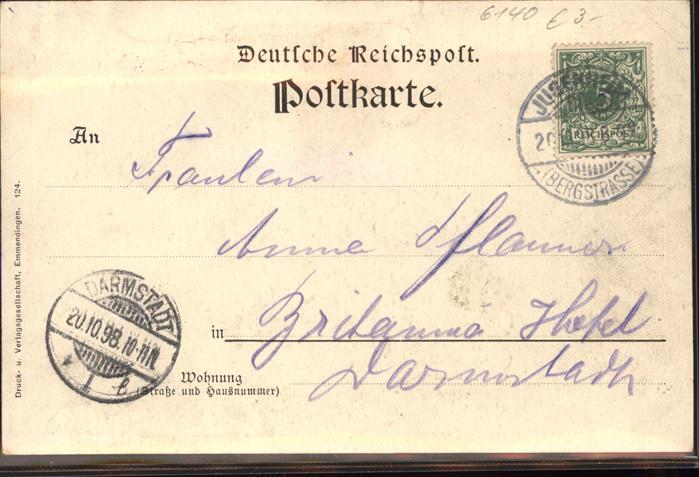 6140 £ 3.-
Deutsche Reichspost.
Postkarte.
JUGENHEIM
5
REICHSPOST
20
(BERGSTRASSE)
An
Fräulein
Anna Pflanner
in Britannia Hotel
Darmstadt
Wohnung
(Straße und Hausnummer)
DARMSTADT
20.10.98.10-11N.
* 1 B.
Druck- u. Verlagsgesellschaft, Emmendingen. 124.